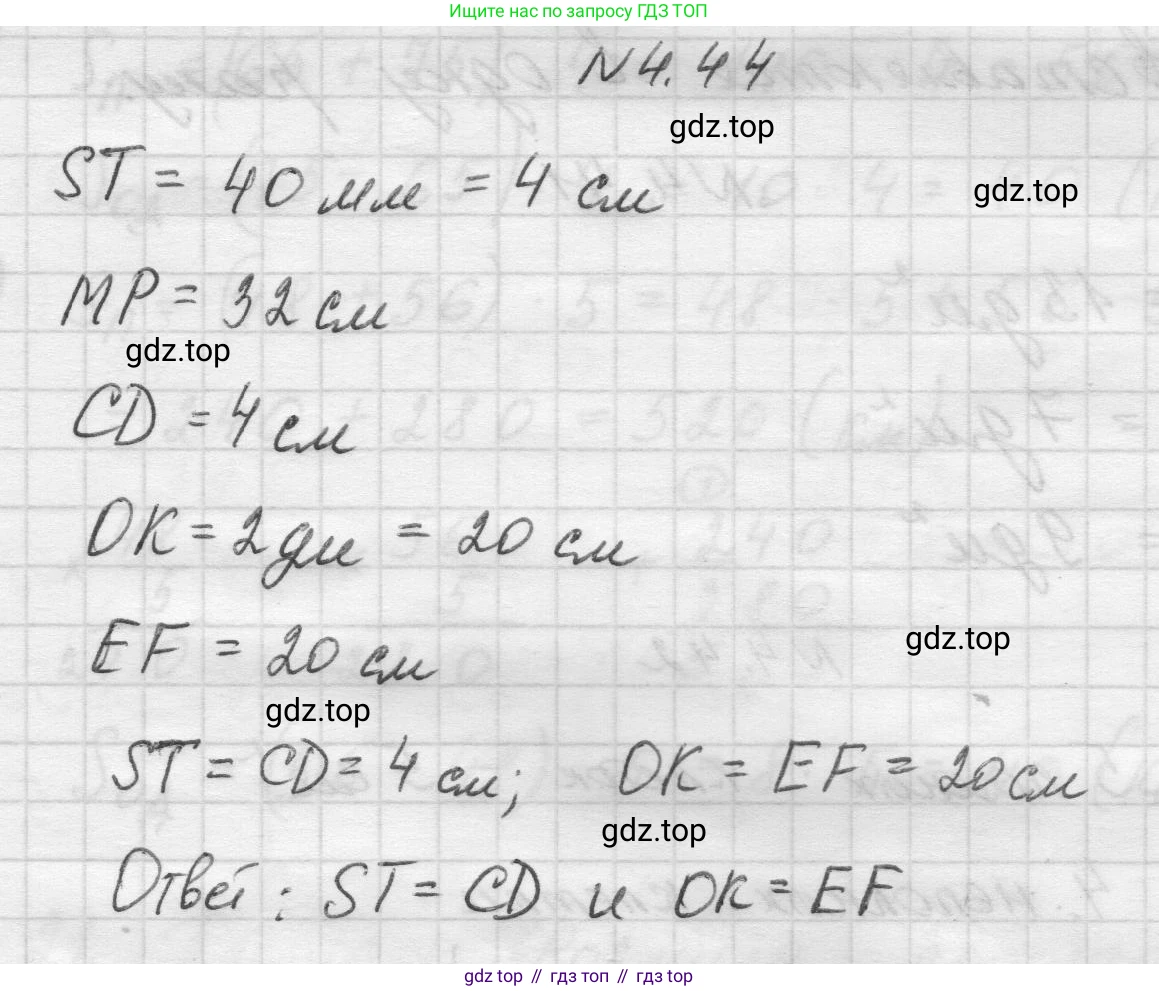 Ищите нас по запросу ГДЗ ТОП
N 4.44
gdz.top
ST = 40 мм = 4 см
gdz.top
MP = 32 см
gdz.top
CD = 4 см
OK = 2 дм = 20 см
EF = 20 см
gdz.top
gdz.top
ST = CD = 4 см; OK = EF = 20 см
gdz.top
Ответ: ST = CD и OK = EF
gdz top // гдз топ // гдз top